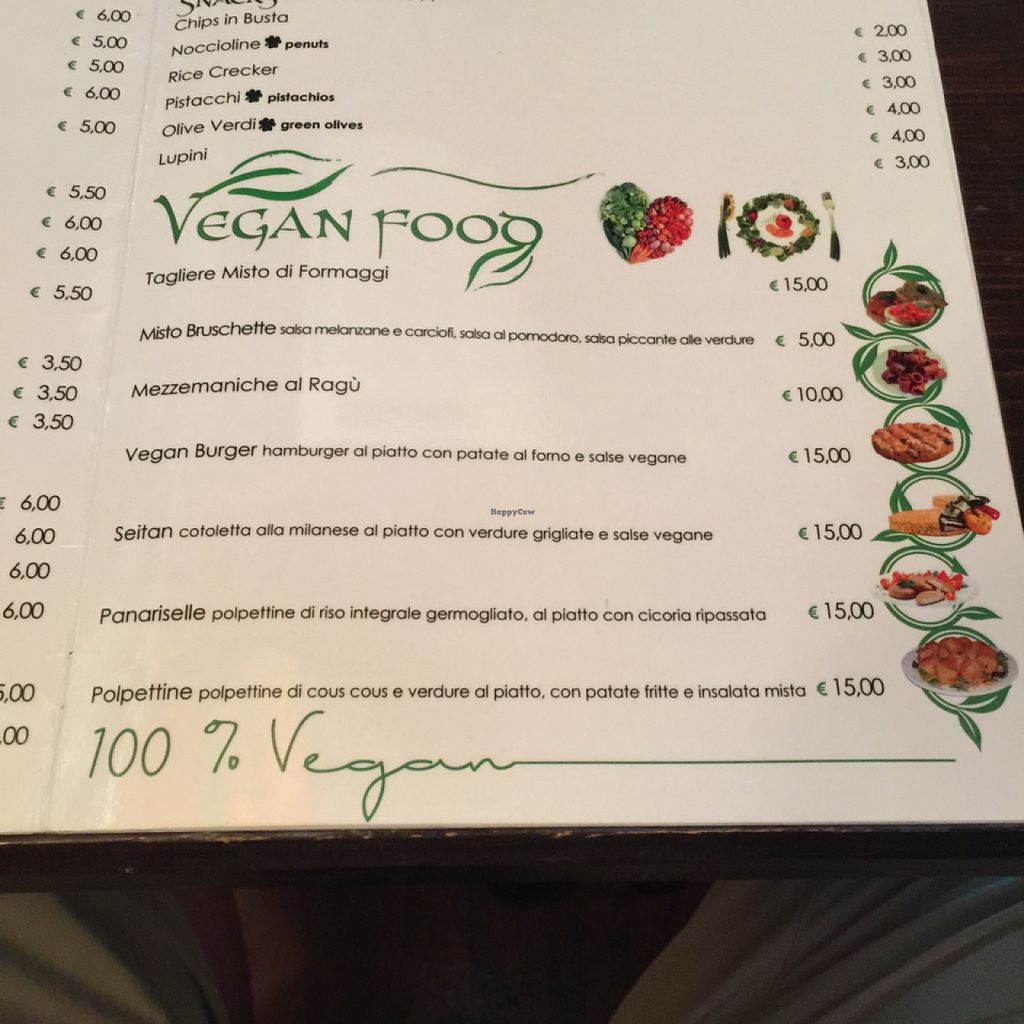 SNACKS
Chips in Busta € 2,00
Noccioline penuts € 3,00
Rice Crecker € 3,00
Pistacchi pistachios € 4,00
Olive Verdi green olives € 4,00
Lupini € 3,00
VEGAN FOOD
Tagliere Misto di Formaggi € 15,00
Misto Bruschette salsa melanzane e carciofi, salsa al pomodoro, salsa piccante alle verdure € 5,00
Mezzemaniche al Ragù € 10,00
Vegan Burger hamburger al piatto con patate al forno e salse vegane € 15,00
HappyCow
Seitan cotoletta alla milanese al piatto con verdure grigliate e salse vegane € 15,00
Panariselle polpettine di riso integrale germogliato, al piatto con cicoria ripassata € 15,00
Polpettine polpettine di cous cous e verdure al piatto, con patate fritte e insalata mista € 15,00
100 % Vegan
€ 6,00
€ 5,00
€ 5,00
€ 6,00
€ 5,00
€ 5,50
€ 6,00
€ 6,00
€ 5,50
€ 3,50
€ 3,50
€ 3,50
€ 6,00
6,00
6,00
6,00
5,00
,00